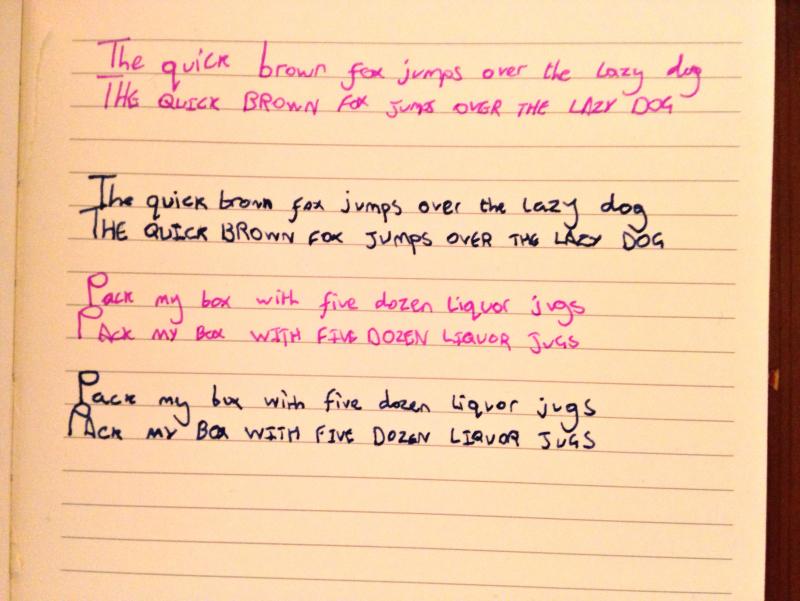 The quick brown fox jumps over the lazy dog
THE QUICK BROWN FOX JUMPS OVER THE LAZY DOG
The quick brown fox jumps over the lazy dog
THE QUICK BROWN FOX JUMPS OVER THE LAZY DOG
Pack my box with five dozen liquor jugs
PACK MY BOX WITH FIVE DOZEN LIQUOR JUGS
Pack my box with five dozen liquor jugs
PACK MY BOX WITH FIVE DOZEN LIQUOR JUGS